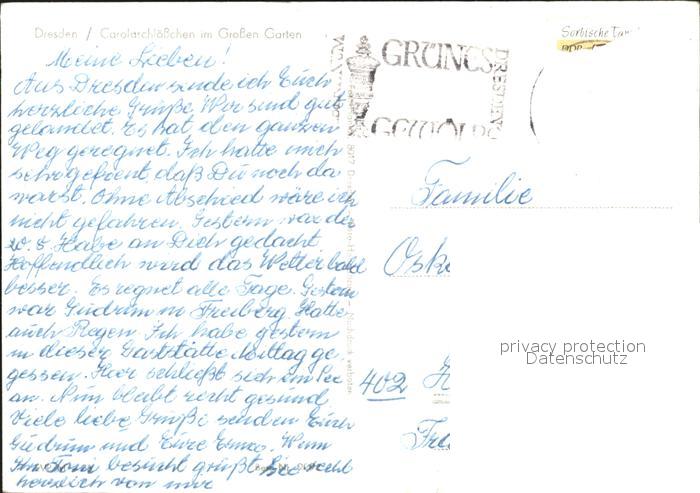 Dresden / Carolaschlößchen im Großen Garten
Meine Lieben!
Aus Dresden sende ich Euch
herzliche Grüße. Wir sind gut
gelandet. Es hat den ganzen
Weg geregnet. Ich hatte mich
sehr gefreut, daß Du noch da
warst. Ohne Abschied wäre ich
nicht gefahren. Gestern war der
20. & Habe an Dich gedacht
Hoffendlich wird das Wetter bald
besser. Es regnet alle Tage. Gestern
war Gudrun in Freiberg. Hatte
auch Regen. Ich habe gestern
in dieser Gaststätte Mittag ge
gessen. Hier schließt sich ein See
an. Nun bleibt recht gesund
Viele liebe Grüße senden Euch
Gudrun und Eure Erna. Wenn
Ihr Toni besucht grüßt Sie recht
herzlich von mir
GRÜNES
GEWÖLBE
DRESDEN
Sorbische
Familie
Osk
402 H
privacy protection
Datenschutz